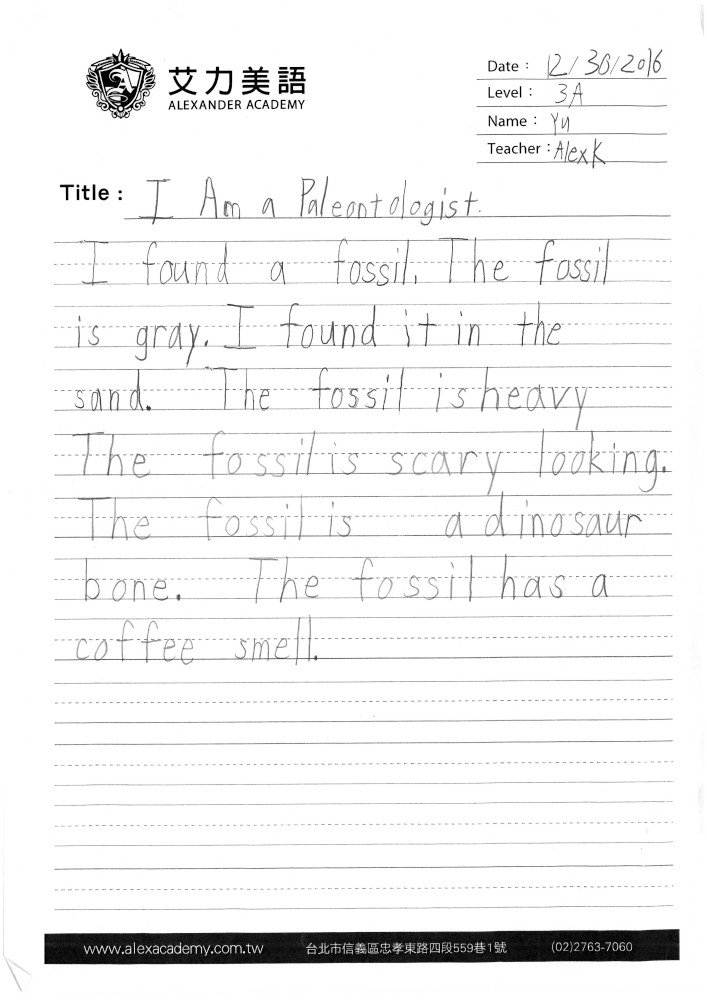 艾力美語
ALEXANDER ACADEMY
Date : 12/30/2016
Level : 3A
Name : Yu
Teacher : Alex K
Title : I Am a Paleontologist.
I found a fossil. The fossil
is gray. I found it in the
sand. The fossil is heavy
The fossil is scary looking.
The fossil is a dinosaur
bone. The fossil has a
coffee smell.
www.alexacademy.com.tw 台北市信義區忠孝東路四段559巷1號 (02)2763-7060